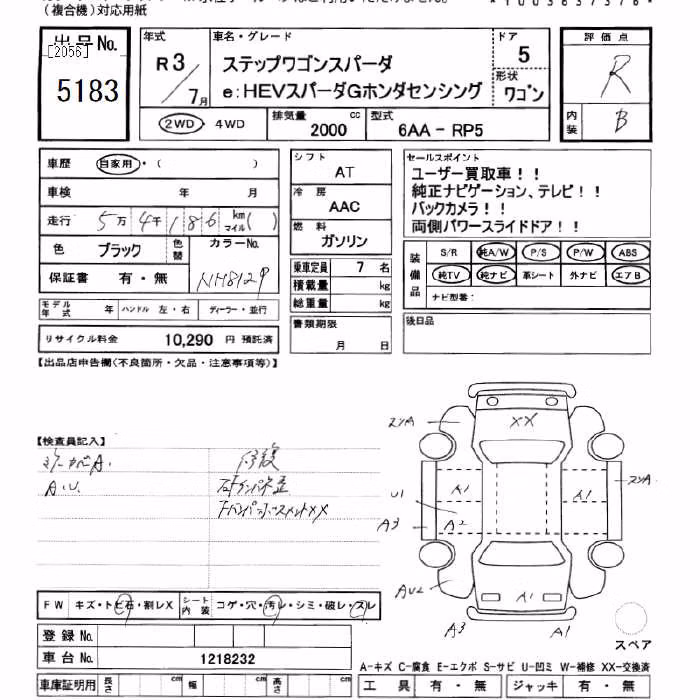 (複合機)対応用紙
*1003637376*
出品No.
[2056]
5183
年式
R3
7月
車名・グレード
ステップワゴンスパーダ
e:HEVスパーダGホンダセンシング
ドア
5
形状
ワゴン
評価点
R
内装
B
2WD・4WD
排気量
2000 cc
型式
6AA-RP5
車歴 自家用・( )
車検 年 月
走行 5万4千186 km マイル( )
色 ブラック 色替 カラーNo.
保証書 有・無 NH812P
モデル年式 年 ハンドル 左・右 ディーラー・並行
リサイクル料金 10,290 円 預託済
シフト
AT
冷房
AAC
燃料
ガソリン
乗車定員 7 名
積載量 kg
総重量 kg
書類期限
月 日
セールスポイント
ユーザー買取車!!
純正ナビゲーション、テレビ!!
バックカメラ!!
両側パワースライドドア!!
装備品
S/R 純A/W P/S P/W ABS
純TV 純ナビ 革シート 外ナビ エアB
ナビ型番:
後日品
【出品店申告欄(不良箇所・欠品・注意事項等)】
【検査員記入】
A.U.
修復
XX
A1
U1
A1
A3
A2
AU2
A1
A3
A1
FW キズ・トビ石・割レX シート内装 コゲ・穴・汚レ・シミ・破レ・スレ
登録No.
車台No. 1218232
車庫証明用 長さ cm 幅 cm 高さ cm
スペア
A-キズ C-腐食 E-エクボ S-サビ U-凹ミ W-補修 XX-交換済
工具 有・無 ジャッキ 有・無